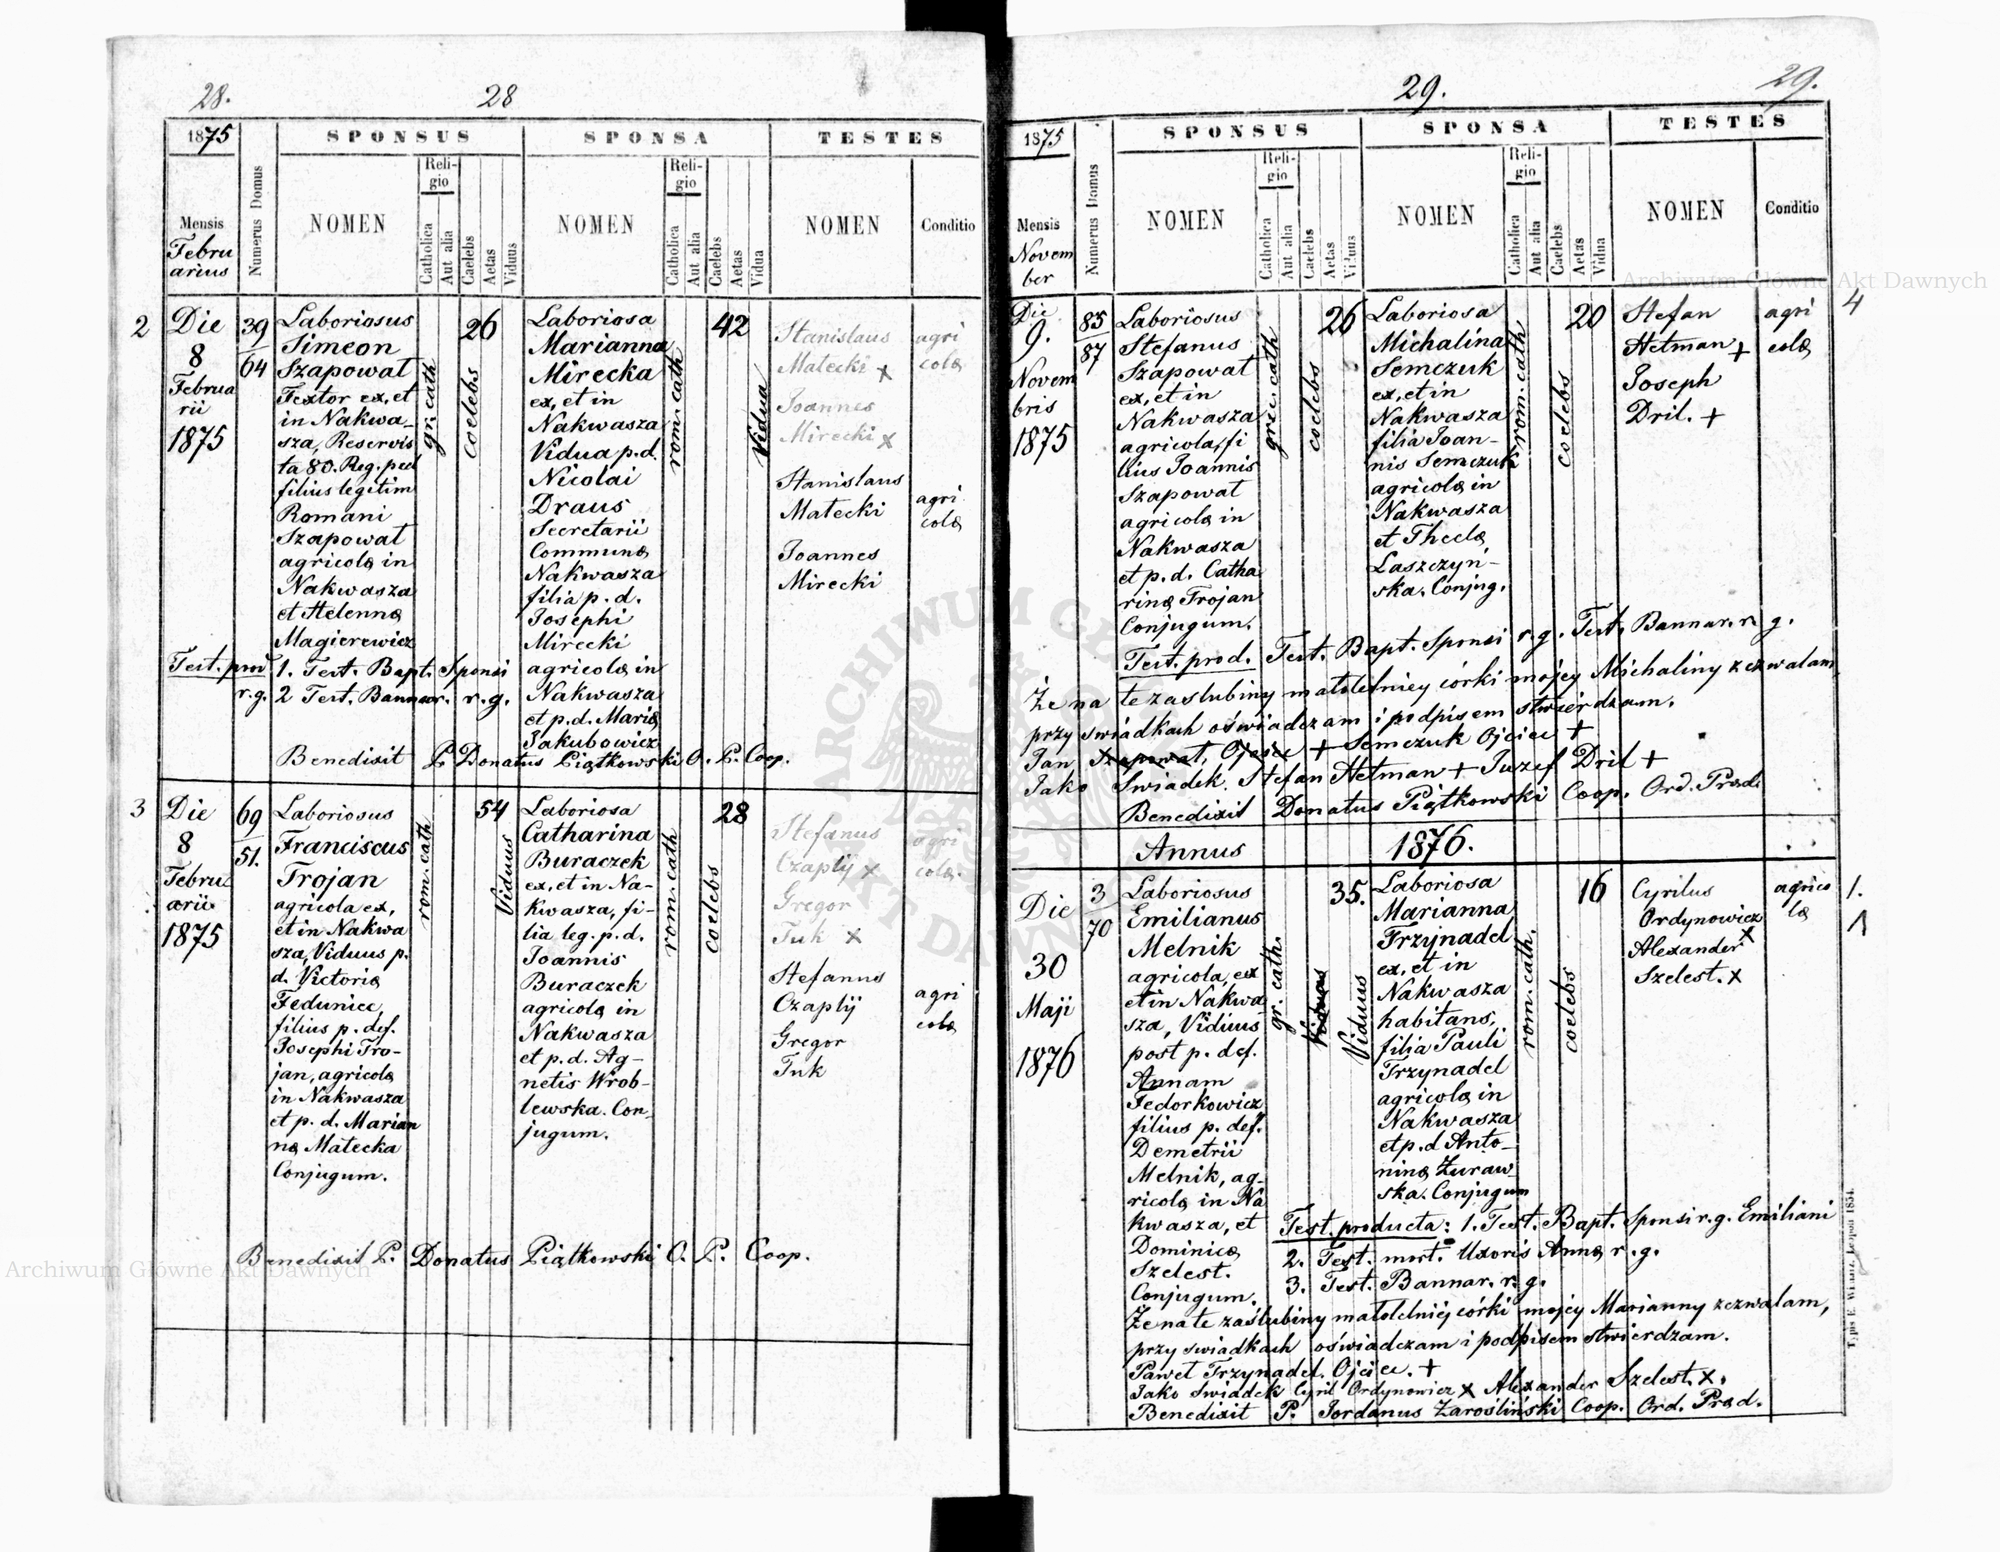 28.
28
1875
SPONSUS
SPONSA
TESTES
Mensis
Febru
arius
Numerus Domus
NOMEN
Reli-
gio
Catholica
Aut alia
Caelebs
Aetas
Viduus
NOMEN
Reli-
gio
Catholica
Aut alia
Caelebs
Aetas
Vidua
NOMEN
Conditio
2
Die
8
Februa
rii
1875
39
64
Laboriosus
Simeon
Szapowat
Textor ex, et
in Nakwa-
sza, Reservis
ta 80. Reg. ped
filius legitim
Romani
Szapowat
agricolæ in
Nakwasza
et Helennæ
Magierewicz
gr. cath
coelebs
26
Laboriosa
Marianna
Mirecka
ex, et in
Nakwasza
Vidua p.d.
Nicolai
Draus
Secretarii
Communæ
Nakwasza
filia p. d.
Josephi
Mirecki
agricolæ in
Nakwasza
et p.d. Mariæ
Jakubowicz
rom. cath
42
Vidua
Stanislaus
Matecki x
Joannes
Mirecki x
Stanislaus
Matecki
Joannes
Mirecki
agri
colæ
agri
colæ
Test. prod
1. Test. Bapt. Sponsi
r.g. 2 Test. Bannor. r.g.
Benedixit P. Donatus Piątkowski O. P. Coop.
3
Die
8
Febru
arii
1875
69
51.
Laboriosus
Franciscus
Trojan
agricola ex,
et in Nakwa
sza, Viduus p.
d. Victoriæ
Feduniec,
filius p. def.
Josephi Tro-
jan, agricolæ
in Nakwasza
et p. d. Marian
næ Matecka
Conjugum.
rom. cath
54
Viduus
Laboriosa
Catharina
Buraczek
ex, et in Na-
kwasza, fi-
lia leg. p. d.
Joannis
Buraczek
agricolæ in
Nakwasza
et p. d. Ag-
netis Wrob-
lewska. Con-
jugum.
rom. cath
coelebs
28
Stefanus
Czaplij x
Gregor
Tuk x
Stefanus
Czaplij
Gregor
Tuk
agri
colæ.
agri
colæ
Benedixit P. Donatus Piątkowski O. P. Coop.
29.
29.
1875
SPONSUS
SPONSA
TESTES
Mensis
Novem
ber
Numerus Domus
NOMEN
Reli-
gio
Catholica
Aut alia
Caelebs
Aetas
Viduus
NOMEN
Reli-
gio
Catholica
Aut alia
Caelebs
Aetas
Vidua
NOMEN
Conditio
4
Die
9.
Novem
bris
1875
85
87
Laboriosus
Stefanus
Szapowat
ex, et in
Nakwasza
agricola, fi
lius Joannis
Szapowat
agricolæ in
Nakwasza
et p. d. Catha
rinæ Trojan
Conjugum.
grec. cath
coelebs
26
Laboriosa
Michalina
Semczuk
ex, et in
Nakwasza
filia Joan-
nis Semczuk
agricolæ in
Nakwasza
et Theclæ
Laszczyn-
ska. Conjug.
rom. cath
coelebs
20
Stefan
Hetman +
Joseph
Dril. +
agri
colæ
Test. prod. Test. Bapt. Sponsi r. g. Test. Bannar. r. g.
Że na te zaslubiny matoletniey córki mojey Michaliny zezwalam
przy swiadkach oświadczam i podpisem stwierdzam.
Jan Szapowat, Ojciec + Semczuk Ojciec +
Jako Swiadek. Stefan Hetman + Juzef Dril +
Benedixit Donatus Piątkowski Coop. Ord. Præd.
Annus 1876.
1.
1
Die
30
Maji
1876
3
70
Laboriosus
Emilianus
Melnik
agricola, ex
et in Nakwa-
sza, Viduus
post p. def.
Annam
Fedorkowicz
filius p. def.
Demetrii
Melnik, ag-
ricolæ in Na
kwasza, et
Dominicæ
Szelest.
Conjugum.
gr. cath.
Viduus
Viduus
35.
Laboriosa
Marianna
Trzynadel
ex, et in
Nakwasza
habitans,
filia Pauli
Trzynadel
agricolæ in
Nakwasza
et p. d Anto-
ninæ Żuraw-
ska. Conjugum
rom. cath.
coelebs
16
Cyrilus
Ordynowicz
x
Alexander
Szelest. x
agrico
læ
Test. producta: 1. Test. Bapt. Sponsi r. g. Emiliani
2. Test. mort. Uxoris Annæ r. g.
3. Test. Bannar. r. g.
Że na te zaślubiny matoletniéj córki mojey Marianny zezwalam,
przy swiadkach oświadczam i podpisem stwierdzam.
Pawet Trzynadel. Ojciec. +
Jako Swiadek Cyril Ordynowicz x Alexander Szelest. x.
Benedixit P. Jordanus Zarosliński Coop. Ord. Præd.
Typis E. Winiarz, Leopoli 1854.
Archiwum Główne Akt Dawnych
Archiwum Główne Akt Dawnych
ARCHIWUM GŁÓWNE AKT DAWNYCH